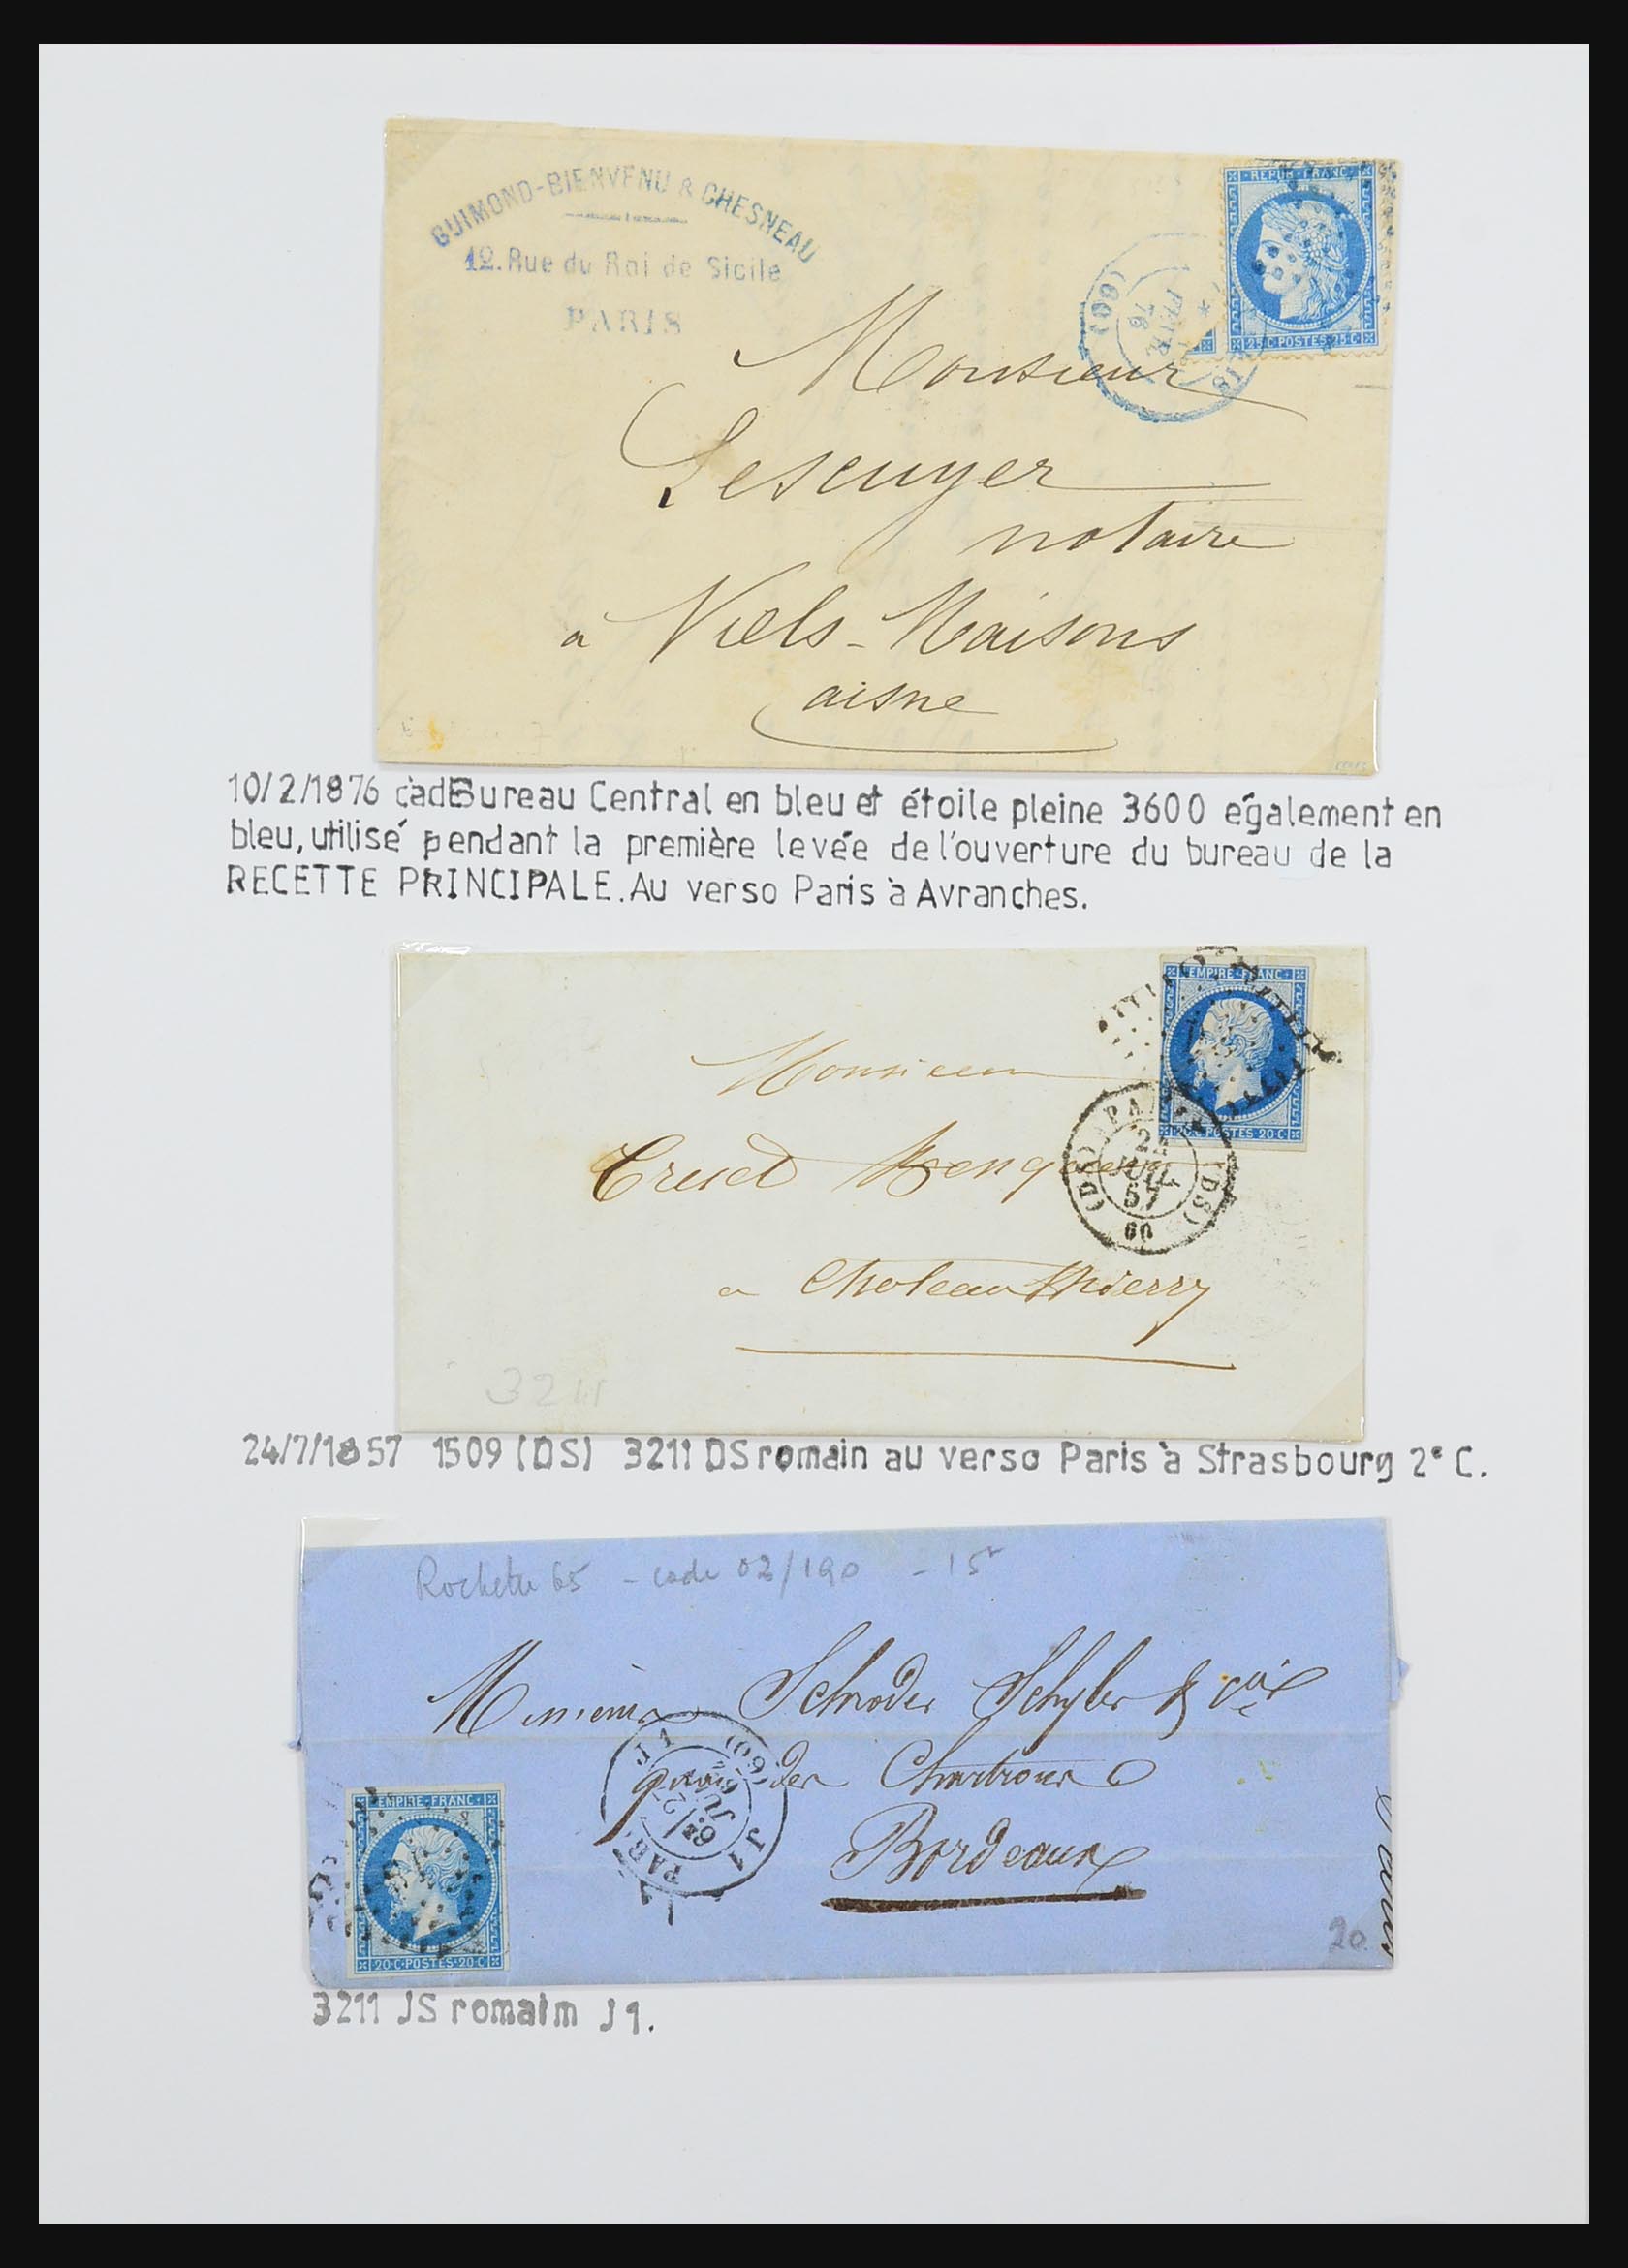 GUIMOND-BIENVENU & CHESNEAU
12. Rue du Roi de Sicile
PARIS
REPUB·FRANC
25 C POSTES 25 C
(60)
FEVR
76
Monsieur
Lescuyer
notaire
à Viels-Maisons
aisne
10/2/1876 càd Bureau Central en bleu et étoile pleine 3600 également en
bleu, utilisé pendant la première levée de l'ouverture du bureau de la
RECETTE PRINCIPALE. Au verso Paris à Avranches.
EMPIRE·FRANC
20 C POSTES 20 C
Monsieur
(DS) PA (DS)
24
JUIL
57
60
a Chateau Thierry
3211
24/7/1857 1509 (DS) 3211 DS romain au verso Paris à Strasbourg 2e C.
Rochette 65 - code 02/190 - 15F
Messieurs Schroder Schyler & Cie
quai des Chartrons
Bordeaux
J 1 (60) J 1
PAR
6E/27
JU
EMPIRE·FRANC
20 C·POSTES·20 C
20
3211 JS romaim J1.